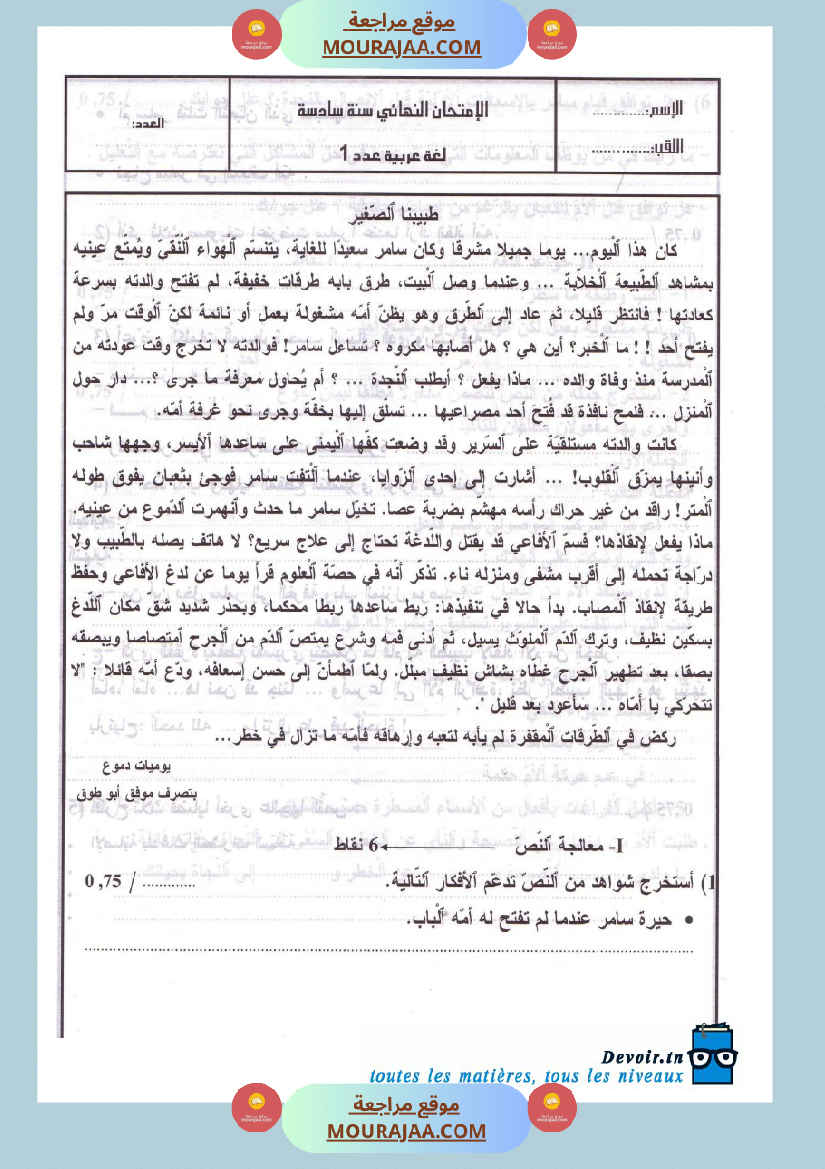 موقع مراجعة
MOURAJAA.COM
الإسم:.............
الإمتحان النهائي سنة سادسة
العدد:
اللقب:.............
لغة عربية عدد 1
طبيبنا ٱلصّغير
كان هذا ٱلْيوم... يوما جميلا مشرقا وكان سامر سعيدًا للغاية، يتنسّم ٱلْهواء ٱلنّقيّ ويُمتّع عينيه
بمشاهد ٱلطّبيعة ٱلْخلاّبة ... وعندما وصل ٱلْبيت، طرق بابه طرقات خفيفة، لم تفتح والدته بسرعة
كعادتها ! فانتظر قليلا، ثم عاد إلى ٱلطّرق وهو يظنّ أمّه مشغولة بعمل أو نائمة لكنّ ٱلْوقت مرّ ولم
يفتح أحد ! ! ما ٱلْخبر؟ أين هي ؟ هل أصابها مكروه ؟ تساءل سامر! فوالدته لا تخرج وقت عودته من
ٱلْمدرسة منذ وفاة والده ... ماذا يفعل ؟ أيطلب ٱلنّجدة ... ؟ أم يُحاول معرفة ما جرى ؟... دار حول
ٱلْمنزل ... فلمح نافذة قد فُتحَ أحد مصراعيها ... تسلّق إليها بخفّة وجرى نحو غرفة أمّه.
كانت والدته مستلقيَة على ٱلسّرير وقد وضعت كفّها ٱلْيمنى على ساعدها ٱلْأيسر، وجهها شاحب
وأنينها يمزّق ٱلْقلوب! ... أشارت إلى إحدى ٱلزّوايا، عندما ٱلْتفت سامر فوجئ بثعبان يفوق طوله
ٱلْمتر! راقد من غير حراك رأسه مهشم بضربة عصا. تخيّل سامر ما حدث وٱنهمرت ٱلدّموع من عينيه.
ماذا يفعل لإنقاذها؟ فسمّ ٱلْأفاعي قد يقتل وٱللّدغة تحتاج إلى علاج سريع؟ لا هاتف يصله بالطّبيب ولا
درّاجة تحمله إلى أقرب مشفى ومنزله ناء. تذكّر أنّه في حصّة ٱلْعلوم قرأ يوما عن لدغ الأفاعي وحفظ
طريقة لإنقاذ ٱلْمصاب. بدأ حالا في تنفيذها: ربط ساعدها ربطا محكما، وبحذر شديد شقّ مكان ٱللّدغ
بسكّين نظيف، وترك ٱلدّم ٱلْملوّث يسيل، ثم أدنى فمه وشرع يمتصّ ٱلدّم من ٱلْجرح ٱمتصاصا ويبصقه
بصقا، بعد تطهير ٱلْجرح غطّاه بشاش نظيف مبلل. ولمّا ٱطمأنّ إلى حسن إسعافه، ودّع أمّه قائلا : "لا
تتحركي يا أمّاه ... سأعود بعد قليل ".
ركض في ٱلطّرقات ٱلْمقفرة لم يأبه لتعبه وإرهاقه فأمّه ما تزال في خطر...
يوميات دموع
بتصرف موفق أبو طوق
I- معالجة ٱلنّصّ 6 نقاط
1) أستخرج شواهد من ٱلنّصّ تدعّم ٱلْأفكار ٱلتّالية. ............. / 0,75
• حيرة سامر عندما لم تفتح له أمّه ٱلْباب.
Devoir.tn
toutes les matières, tous les niveaux
موقع مراجعة
MOURAJAA.COM